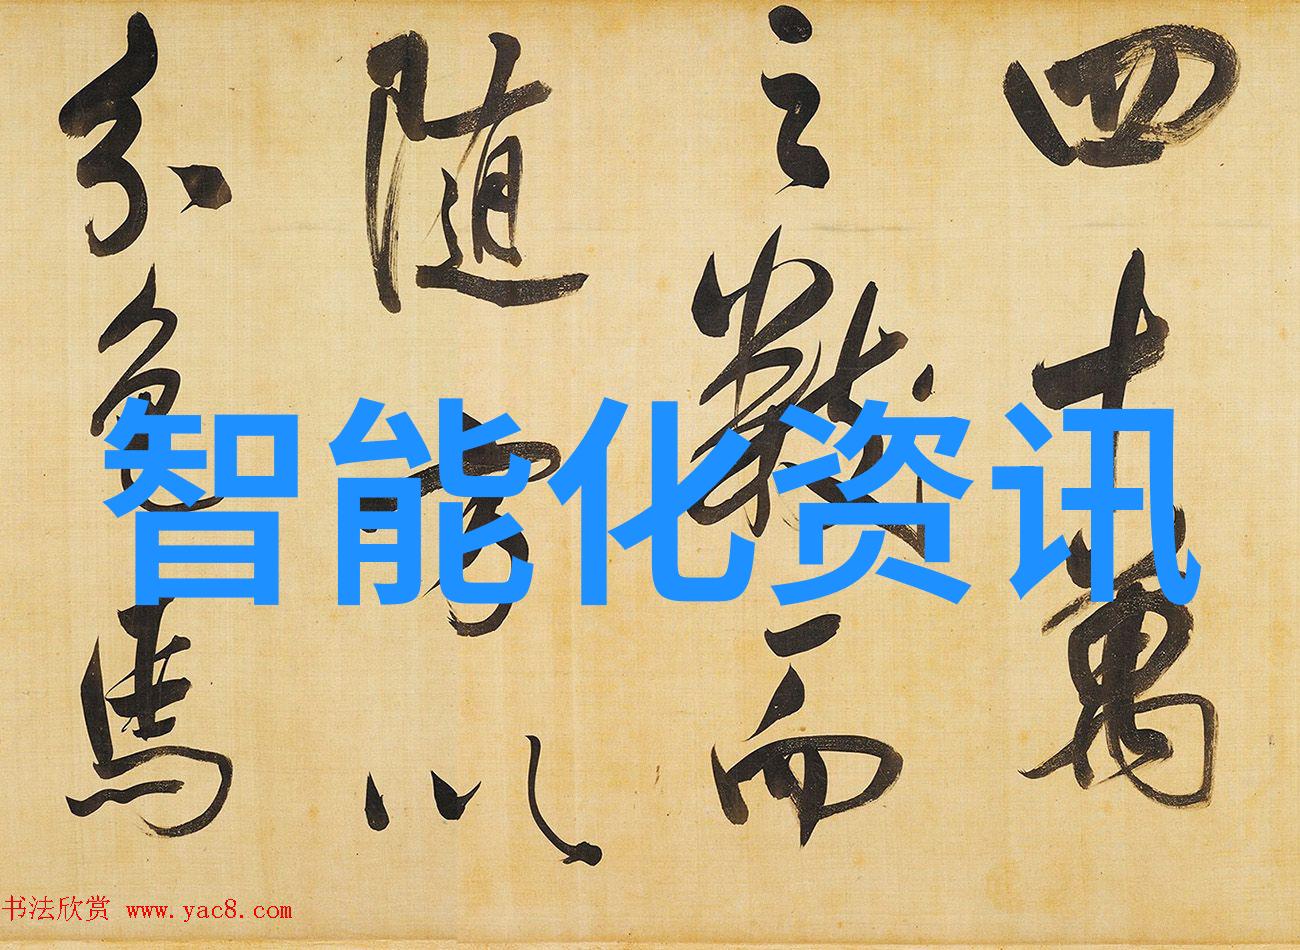 四十萬
之數而
隨以
分色馬
智能化资讯
书法欣赏 www.yac8.com